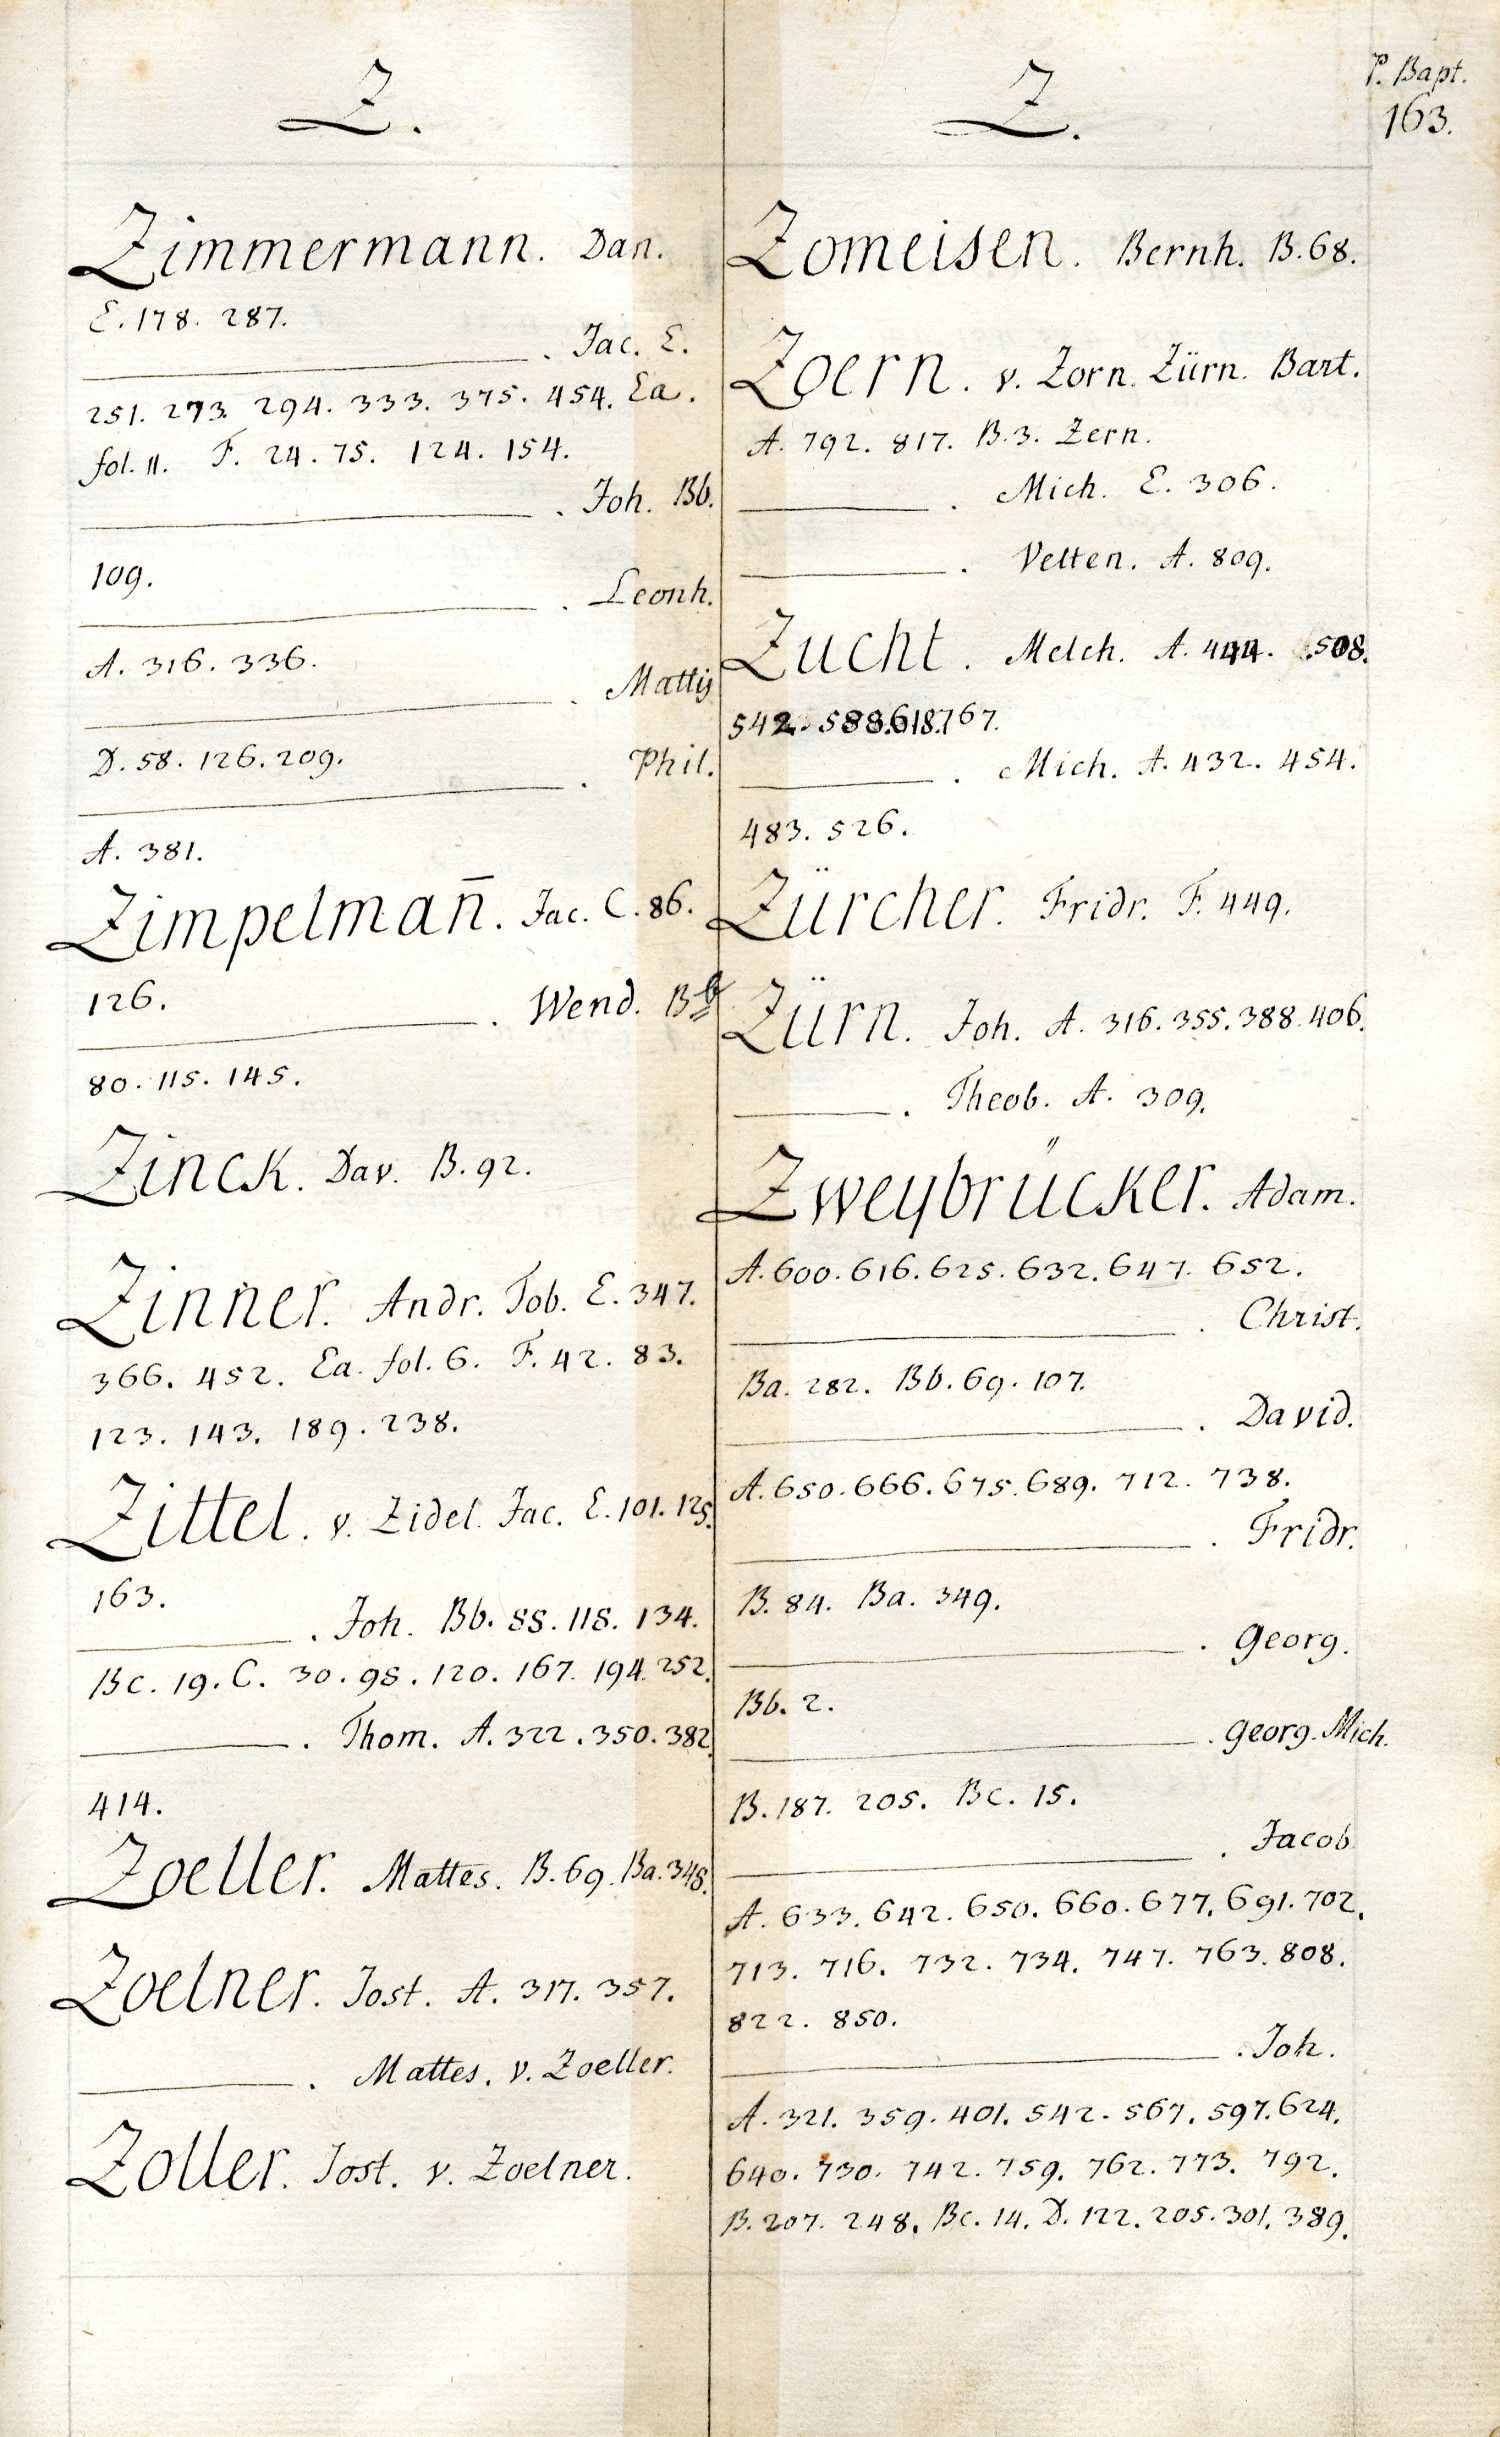 P. Bapt.
163.
Z.
Zimmermann. Dan.
E. 178. 287.
. Jac. E.
251. 273. 294. 333. 375. 454. Ea.
fol. 11. F. 24. 75. 124. 154.
. Joh. Bb.
109.
. Leonh.
A. 316. 336.
. Mattis
D. 58. 126. 209.
. Phil.
A. 381.
Zimpelman̄. Jac. C. 86.
126.
. Wend. Bb
80. 115. 145.
Zinck. Dav. B. 92.
Zinner. Andr. Tob. E. 347.
366. 452. Ea. fol. 6. F. 42. 83.
123. 143. 189. 238.
Zittel. v. Zidel. Jac. E. 101. 125.
163.
. Joh. Bb. 88. 118. 134.
Bc. 19. C. 30. 98. 120. 167. 194. 252.
. Thom. A. 322. 350. 382.
414.
Zoeller. Mattes. B. 69. Ba. 348.
Zoelner. Jost. A. 317. 357.
. Mattes. v. Zoeller.
Zoller. Jost. v. Zoelner.
Z.
Zomeisen. Bernh. B. 68.
Zoern. v. Zorn. Zürn. Bart.
A. 792. 817. B. 3. Zern.
. Mich. E. 306.
. Velten. A. 809.
Zucht. Melch. A. 444. 508.
542. 588. 618. 767.
. Mich. A. 432. 454.
483. 526.
Zürcher. Fridr. F. 449.
Zürn. Joh. A. 316. 355. 388. 406.
. Theob. A. 309.
Zweybrücker. Adam.
A. 600. 616. 625. 632. 647. 652.
. Christ.
Ba. 282. Bb. 69. 107.
. David.
A. 650. 666. 675. 689. 712. 738.
. Fridr.
B. 84. Ba. 349.
. Georg.
Bb. 2.
. Georg. Mich.
B. 187. 205. Bc. 15.
. Jacob.
A. 633. 642. 650. 660. 677. 691. 702.
713. 716. 732. 734. 747. 763. 808.
822. 850.
. Joh.
A. 321. 359. 401. 542. 567. 597. 624.
640. 730. 742. 759. 762. 773. 792.
B. 207. 248. Bc. 14. D. 122. 205. 301. 389.